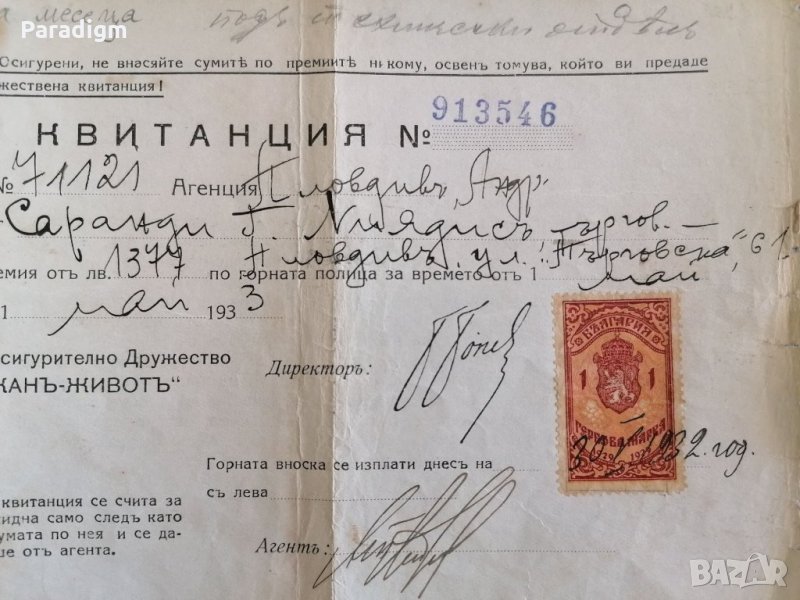 а месеца подъ
Paradigm
Осигурени, не внасяйте сумитѣ по премиитѣ никому, освенъ томува, който ви предаде
жествена квитанция!
КВИТАНЦИЯ № 913546
№ 71121 Агенция Пловдивъ
Саранди търгов.
емия отъ лв. 1377 Пловдивъ, ул. „Търговска“, 61
по горната полица за времето отъ 1 май
1 май 1933
БЪЛГАРИЯ
1 1
ГЕРБОВА МАРКА
сигурително Дружество
КАНЪ-ЖИВОТЪ“
Директоръ:
1932 год.
Горната вноска се изплати днесъ на
съ лева
квитанция се счита за
идна само следъ като
умата по нея и се да-
ше отъ агента.
Агентъ:
BAZAR